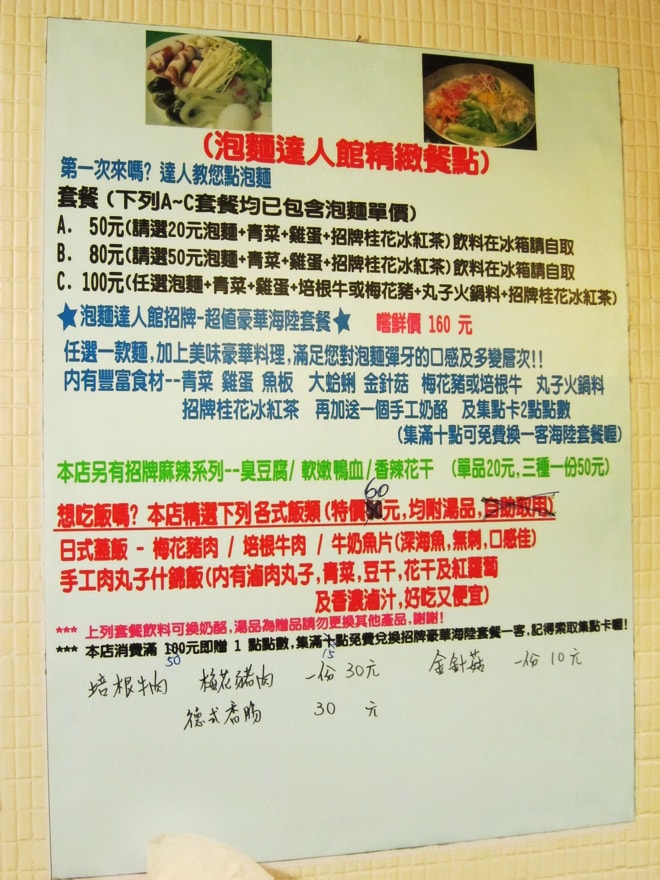 (泡麵達人館精緻餐點)
第一次來嗎? 達人教您點泡麵
套餐 (下列A~C套餐均已包含泡麵單價)
A. 50元(請選20元泡麵+青菜+雞蛋+招牌桂花冰紅茶)飲料在冰箱請自取
B. 80元(請選50元泡麵+青菜+雞蛋+招牌桂花冰紅茶)飲料在冰箱請自取
C. 100元(任選泡麵+青菜+雞蛋+培根牛或梅花豬+丸子火鍋料+招牌桂花冰紅茶)
★泡麵達人館招牌-超值豪華海陸套餐★ 嚐鮮價 160 元
任選一款麵,加上美味豪華料理,滿足您對泡麵彈牙的口感及多變層次!!
內有豐富食材--青菜 雞蛋 魚板 大蛤蜊 金針菇 梅花豬或培根牛 丸子火鍋料
招牌桂花冰紅茶 再加送一個手工奶酪 及集點卡2點點數
(集滿十點可免費換一客海陸套餐喔)
本店另有招牌麻辣系列--臭豆腐/ 軟嫩鴨血/香辣花干 (單品20元,三種一份50元)
60
想吃飯嗎? 本店精選下列各式飯類(特價元,均附湯品,自助取用)
日式蓋飯 - 梅花豬肉 / 培根牛肉 / 牛奶魚片(深海魚,無刺,口感佳)
手工肉丸子什錦飯(內有滷肉丸子,青菜,豆干,花干及紅蘿蔔
及香濃滷汁,好吃又便宜)
*** 上列套餐飲料可換奶酪,湯品為贈品請勿更換其他產品,謝謝!
*** 本店消費滿 100元即贈 1 點點數,集滿十點免費兌換招牌豪華海陸套餐一客,記得索取集點卡喔!
50 15
培根牛肉 梅花豬肉 一份 30元 金針菇 一份 10元
德式香腸 30 元